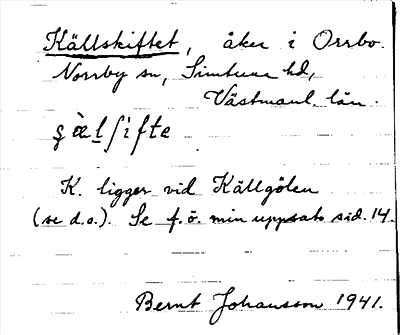 Källskiftet, åker i Orrbo.
Norrby sn, Simtuna hd,
Västmanl. län.
K. ligger vid Källgölen
(se d.o.). Se f.ö. min uppsats sid. 14.
Bernt Johansson 1941.